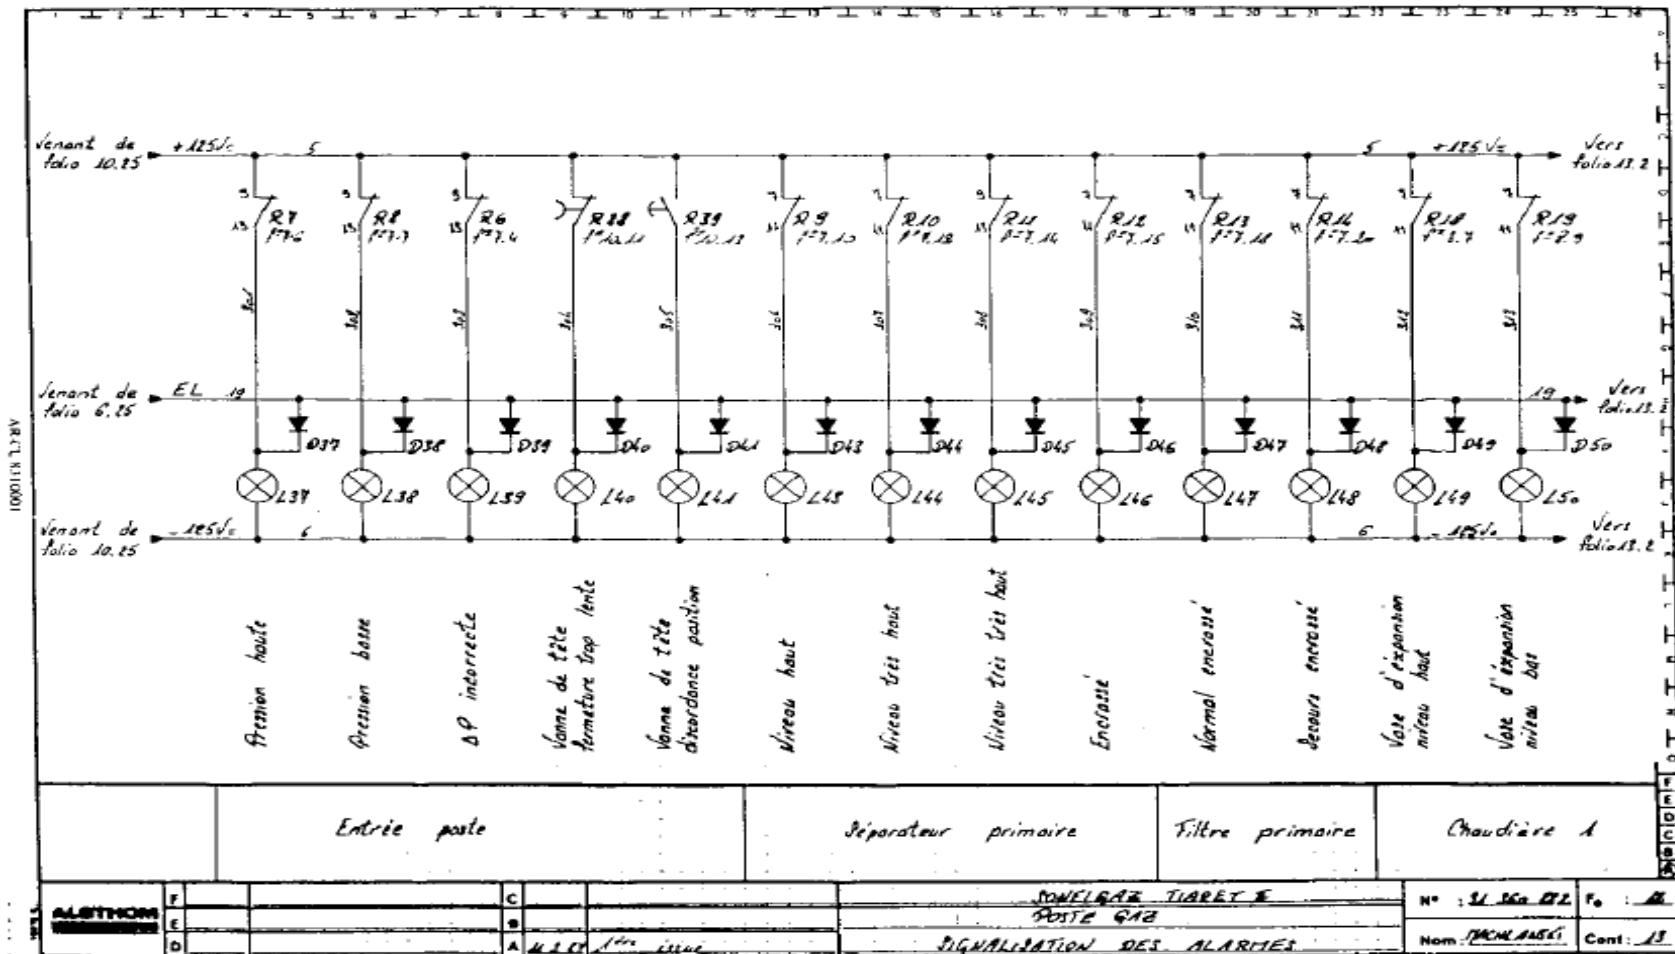 1 2 3 4 5 6 7 8 9 10 11 12 13 14 15 16 17 18 19 20 21 22 23 24 25 26
Venant de
folio 10.25
+125V= 5
5 +125V=
Vers
folio 13.2
R7
R8
R6
R38
R39
R9
R10
R11
R12
R13
R14
R18
R19
301 302 303 304 305 306 307 308 309 310 311 312 313
Venant de
folio 6.25
EL 19
19
Vers
folio 13.2
D37 D38 D39 D40 D41 D43 D44 D45 D46 D47 D48 D49 D50
L37 L38 L39 L40 L41 L43 L44 L45 L46 L47 L48 L49 L50
Venant de
folio 10.25
-125V= 6
6 -125V=
Vers
folio 13.2
Pression haute
Pression basse
ΔP incorrecte
Vanne de tête
fermeture trop lente
Vanne de tête
discordance position
Niveau haut
Niveau très haut
Niveau très très haut
Encrassé
Normal encrassé
Secours encrassé
Vase d'expansion
niveau haut
Vase d'expansion
niveau bas
Entrée poste
Séparateur primaire
Filtre primaire
Chaudière 1
ALSTHOM
F
E
D
C
B
A
1ère issue
SONELGAZ TIARET
POSTE GAZ
SIGNALISATION DES ALARMES
N° :
Fo :
Nom :
Cont : 13